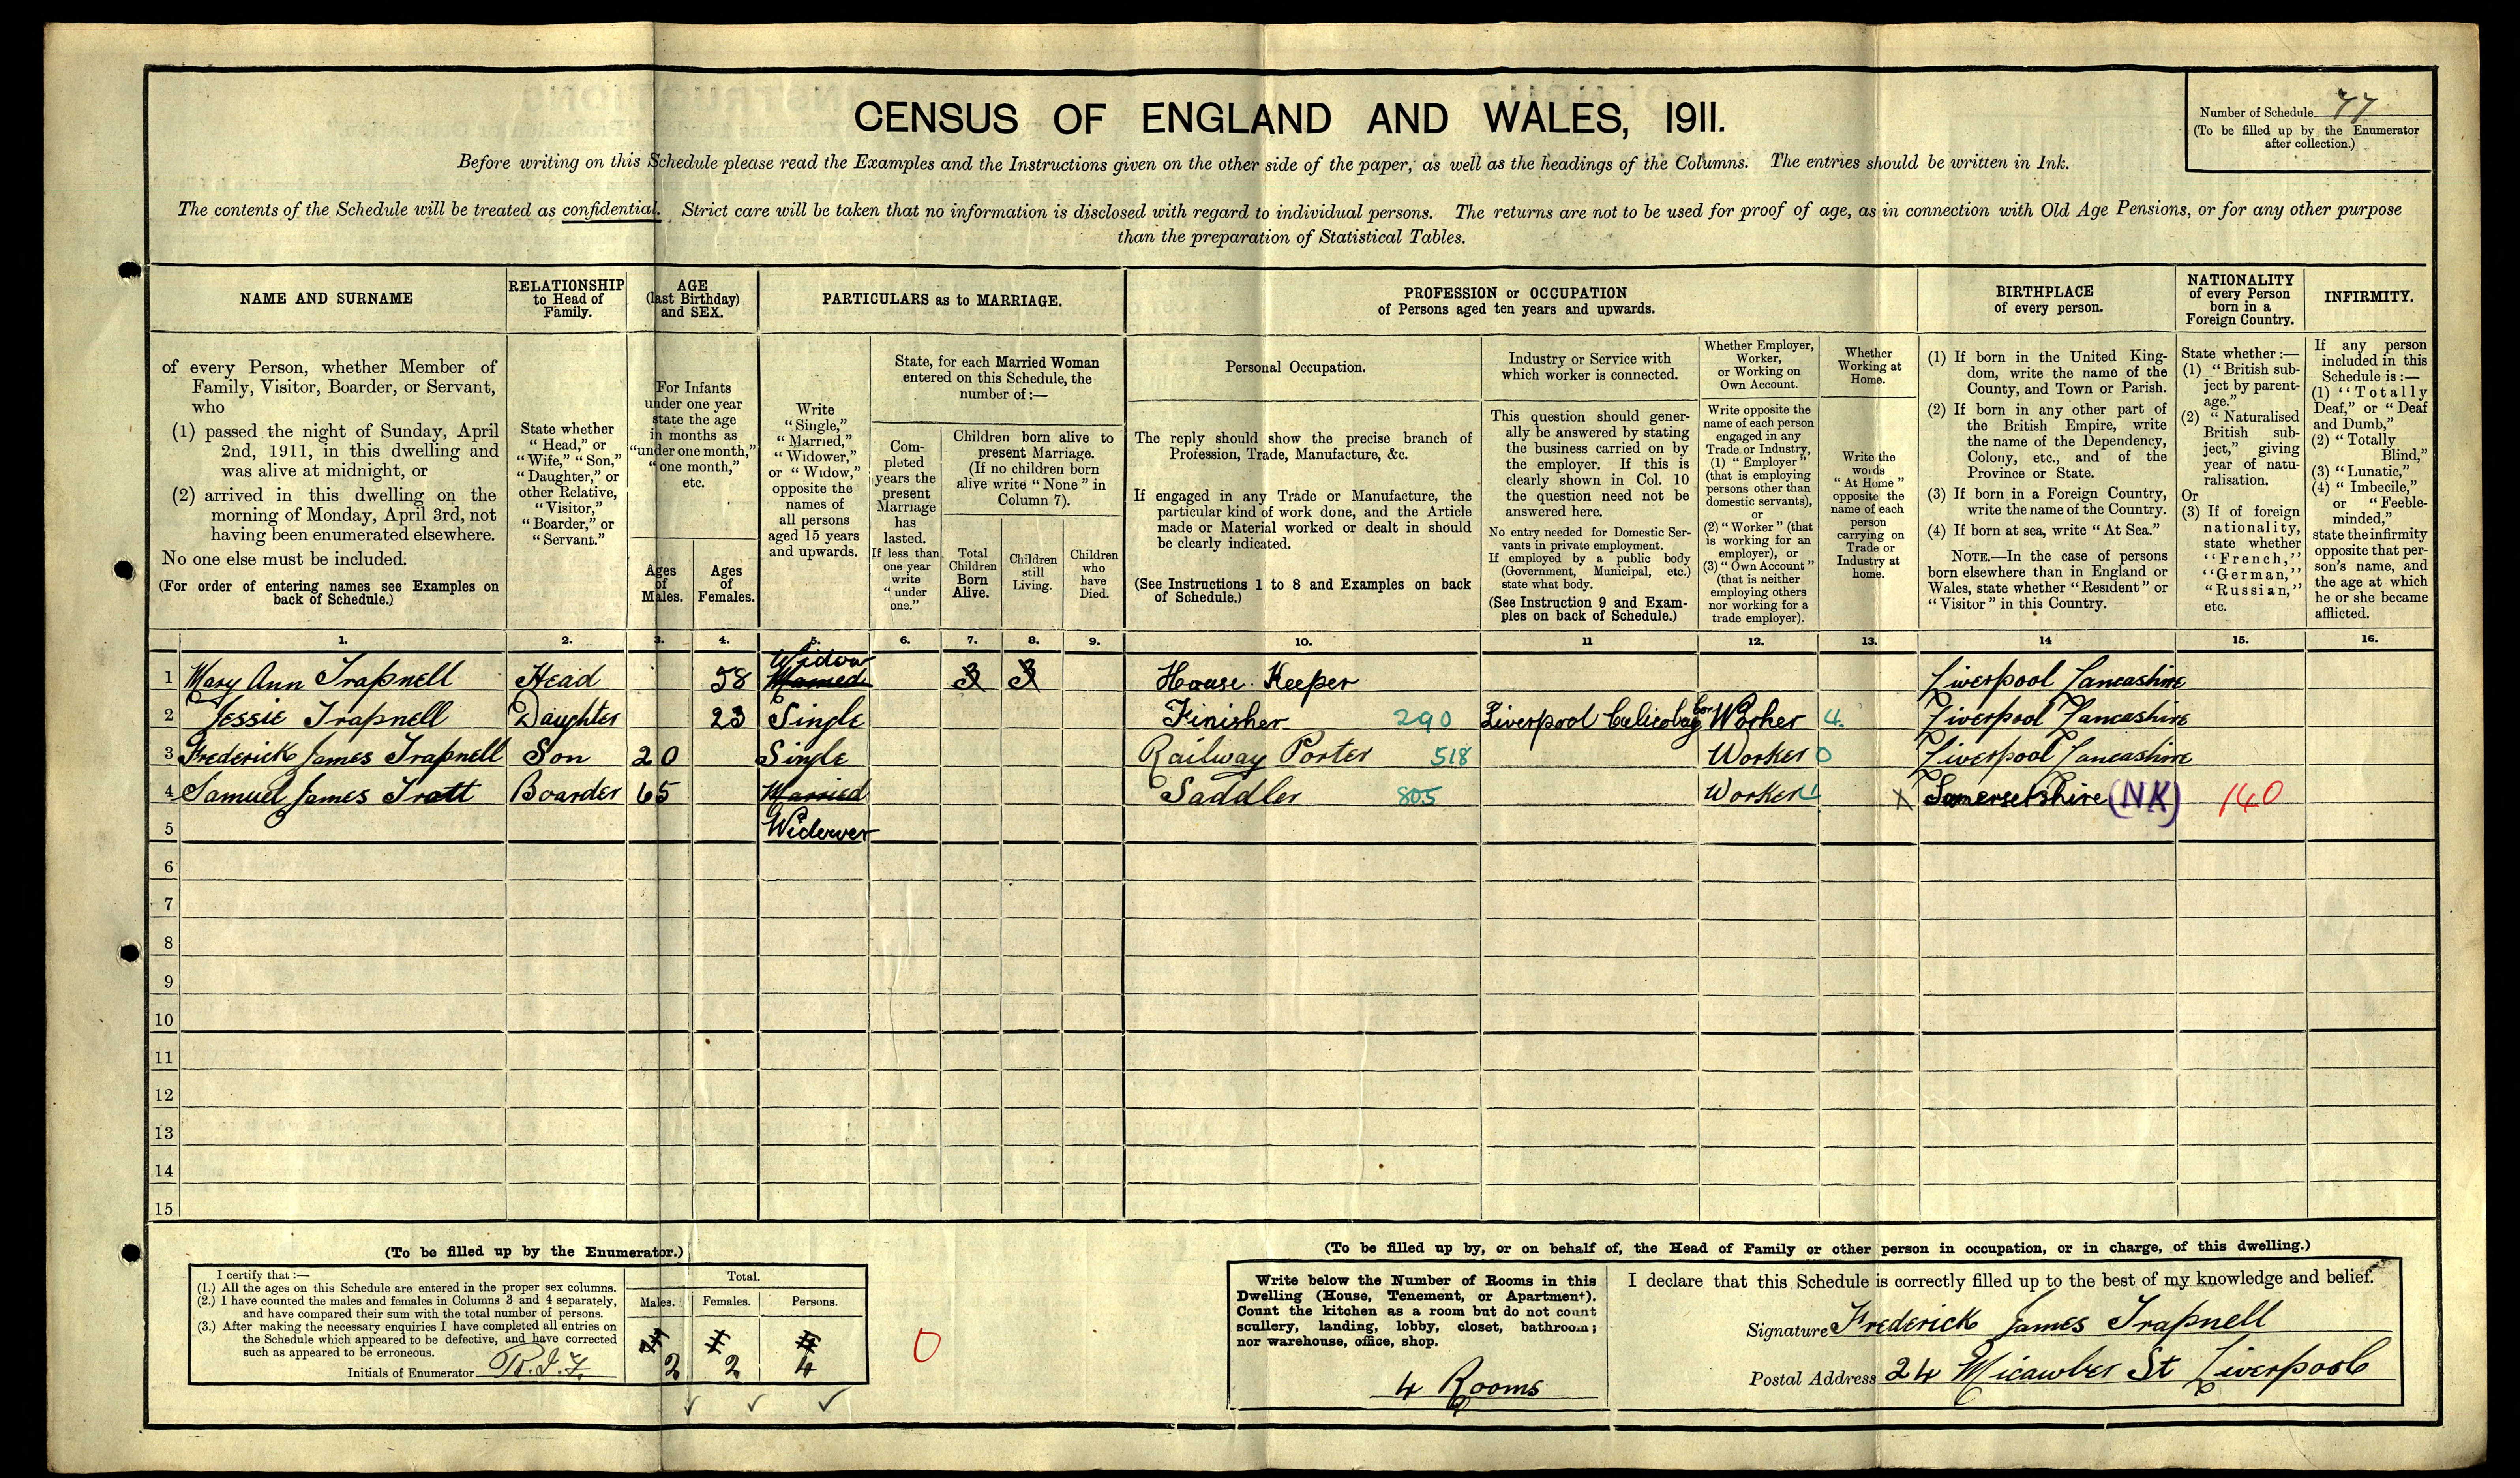 CENSUS OF ENGLAND AND WALES, 1911.
Number of Schedule 77
(To be filled up by the Enumerator
after collection.)
Before writing on this Schedule please read the Examples and the Instructions given on the other side of the paper, as well as the headings of the Columns. The entries should be written in Ink.
The contents of the Schedule will be treated as confidential. Strict care will be taken that no information is disclosed with regard to individual persons. The returns are not to be used for proof of age, as in connection with Old Age Pensions, or for any other purpose
than the preparation of Statistical Tables.
NAME AND SURNAME
of every Person, whether Member of
Family, Visitor, Boarder, or Servant,
who
(1) passed the night of Sunday, April
2nd, 1911, in this dwelling and
was alive at midnight, or
(2) arrived in this dwelling on the
morning of Monday, April 3rd, not
having been enumerated elsewhere.
No one else must be included.
(For order of entering names see Examples on
back of Schedule.)
RELATIONSHIP
to Head of
Family.
State whether
"Head," or
"Wife," "Son,"
"Daughter," or
other Relative,
"Visitor,"
"Boarder," or
"Servant."
AGE
(last Birthday)
and SEX.
For Infants
under one year
state the age
in months as
"under one month,"
"one month,"
etc.
Ages
of
Males.
Ages
of
Females.
PARTICULARS as to MARRIAGE.
Write
"Single,"
"Married,"
"Widower,"
or "Widow,"
opposite the
names of
all persons
aged 15 years
and upwards.
State, for each Married Woman
entered on this Schedule, the
number of :—
Com-
pleted
years the
present
Marriage
has
lasted.
If less than
one year
write
"under
one."
Children born alive to
present Marriage.
(If no children born
alive write "None" in
Column 7).
Total
Children
Born
Alive.
Children
still
Living.
Children
who
have
Died.
PROFESSION or OCCUPATION
of Persons aged ten years and upwards.
Personal Occupation.
The reply should show the precise branch of
Profession, Trade, Manufacture, &c.
If engaged in any Trade or Manufacture, the
particular kind of work done, and the Article
made or Material worked or dealt in should
be clearly indicated.
(See Instructions 1 to 8 and Examples on back
of Schedule.)
Industry or Service with
which worker is connected.
This question should gener-
ally be answered by stating
the business carried on by
the employer. If this is
clearly shown in Col. 10
the question need not be
answered here.
No entry needed for Domestic Ser-
vants in private employment.
If employed by a public body
(Government, Municipal, etc.)
state what body.
(See Instruction 9 and Exam-
ples on back of Schedule.)
Whether Employer,
Worker,
or Working on
Own Account.
Write opposite the
name of each person
engaged in any
Trade or Industry,
(1) "Employer"
(that is employing
persons other than
domestic servants),
or
(2) "Worker" (that
is working for an
employer), or
(3) "Own Account"
(that is neither
employing others
nor working for a
trade employer).
Whether
Working at
Home.
Write the
words
"At Home"
opposite the
name of each
person
carrying on
Trade or
Industry at
home.
BIRTHPLACE
of every person.
(1) If born in the United King-
dom, write the name of the
County, and Town or Parish.
(2) If born in any other part of
the British Empire, write
the name of the Dependency,
Colony, etc., and of the
Province or State.
(3) If born in a Foreign Country,
write the name of the Country.
(4) If born at sea, write "At Sea."
NOTE.—In the case of persons
born elsewhere than in England or
Wales, state whether "Resident" or
"Visitor" in this Country.
NATIONALITY
of every Person
born in a
Foreign Country.
State whether :—
(1) "British sub-
ject by parent-
age."
(2) "Naturalised
British sub-
ject," giving
year of natu-
ralisation.
Or
(3) If of foreign
nationality,
state whether
"French,"
"German,"
"Russian,"
etc.
INFIRMITY.
If any person
included in this
Schedule is :—
(1) "Totally
Deaf," or "Deaf
and Dumb,"
(2) "Totally
Blind,"
(3) "Lunatic,"
(4) "Imbecile,"
or "Feeble-
minded,"
state the infirmity
opposite that per-
son's name, and
the age at which
he or she became
afflicted.
1. 2. 3. 4. 5. 6. 7. 8. 9. 10. 11 12. 13. 14 15. 16.
Widow
1 Mary Ann Trapnell Head 58 Married 3 3 House Keeper Liverpool Lancashire
2 Jessie Trapnell Daughter 23 Single Finisher 290 Liverpool Calico bag Cor. Worker 4. Liverpool Lancashire
3 Frederick James Trapnell Son 20 Single Railway Porter 518 Worker 0 Liverpool Lancashire
4 Samuel James Tratt Boarder 65 Married Saddler 805 Worker X Somersetshire (NK) 140
5 Widower
6
7
8
9
10
11
12
13
14
15
(To be filled up by the Enumerator.)
I certify that :—
(1.) All the ages on this Schedule are entered in the proper sex columns.
(2.) I have counted the males and females in Columns 3 and 4 separately,
and have compared their sum with the total number of persons.
(3.) After making the necessary enquiries I have completed all entries on
the Schedule which appeared to be defective, and have corrected
such as appeared to be erroneous.
Initials of Enumerator
Total.
Males. Females. Persons.
2 2 4
0
(To be filled up by, or on behalf of, the Head of Family or other person in occupation, or in charge, of this dwelling.)
Write below the Number of Rooms in this
Dwelling (House, Tenement, or Apartment).
Count the kitchen as a room but do not count
scullery, landing, lobby, closet, bathroom;
nor warehouse, office, shop.
4 Rooms
I declare that this Schedule is correctly filled up to the best of my knowledge and belief.
Signature Frederick James Trapnell
Postal Address 24 Micawber St Liverpool